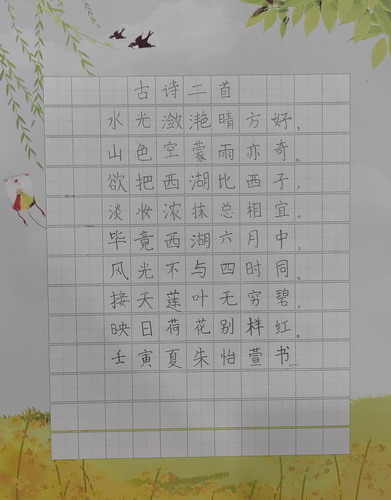 古诗二首
水光潋滟晴方好，
山色空蒙雨亦奇。
欲把西湖比西子，
淡妆浓抹总相宜。
毕竟西湖六月中，
风光不与四时同。
接天莲叶无穷碧，
映日荷花别样红。
壬寅夏朱怡萱书